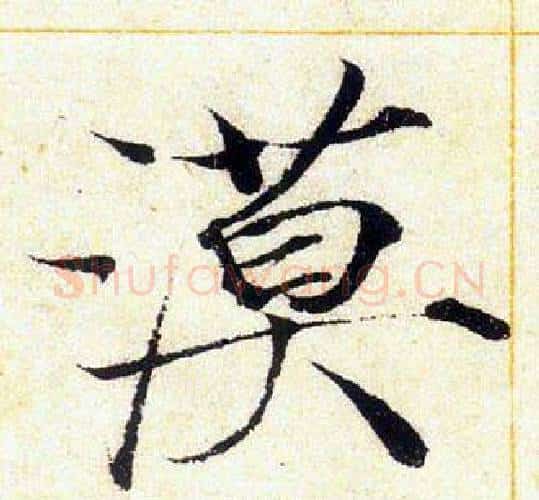 漠
Shufawang.CN